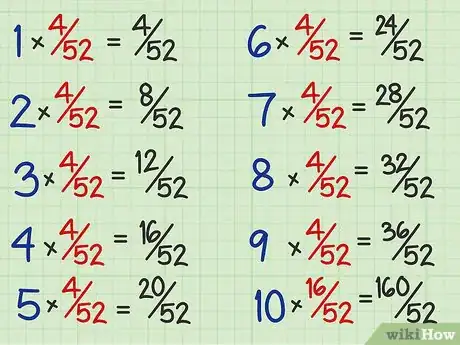 1 × 4/52 = 4/52
2 × 4/52 = 8/52
3 × 4/52 = 12/52
4 × 4/52 = 16/52
5 × 4/52 = 20/52
6 × 4/52 = 24/52
7 × 4/52 = 28/52
8 × 4/52 = 32/52
9 × 4/52 = 36/52
10 × 16/52 = 160/52
wikiHow